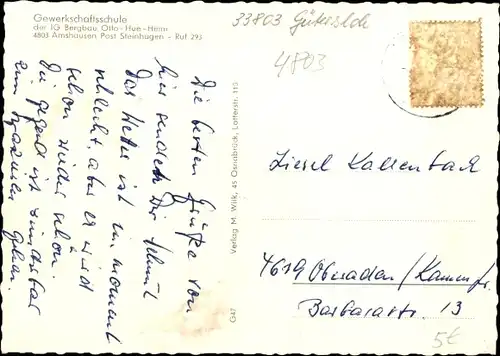 Gewerkschaftsschule
der IG Bergbau, Otto-Hue-Heim
4803 Amshausen Post Steinhagen - Ruf 293
33803 Gütersloh
4803
Die besten Grüße von
hier sendet Dir Helmut
Das Wetter ist im moment
schlecht, aber es wird
schon wieder schön.
Die gegend ist wunderbar
zum spazieren gehen.
Verlag M. Wilk, 45 Osnabrück, Lotterstr. 110
G47
Liesel Kaltenback
4619 Oberaden / Kamen
Barbarastr. 13
5€